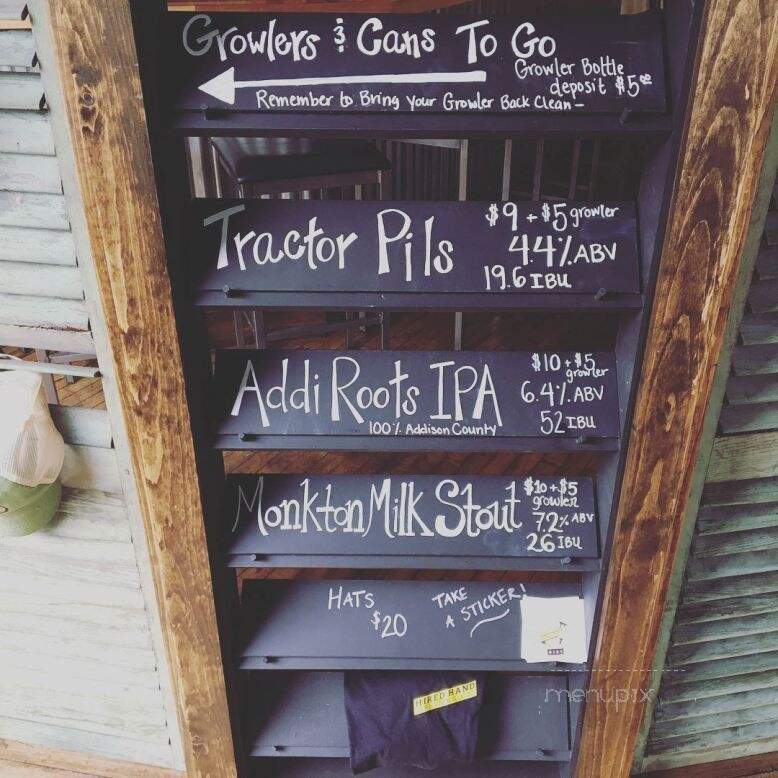 Growlers & Cans To Go
Growler Bottle
deposit $5⁰⁰
Remember to Bring Your Growler Back Clean-
Tractor Pils
$9 + $5 growler
4.4% ABV
19.6 IBU
Addi Roots IPA
100% Addison County
$10 + $5
growler
6.4% ABV
52 IBU
Monkton Milk Stout
$10 + $5
growler
7.2% ABV
26 IBU
HATS
$20
TAKE
A STICKER!
HIRED HAND
menupix